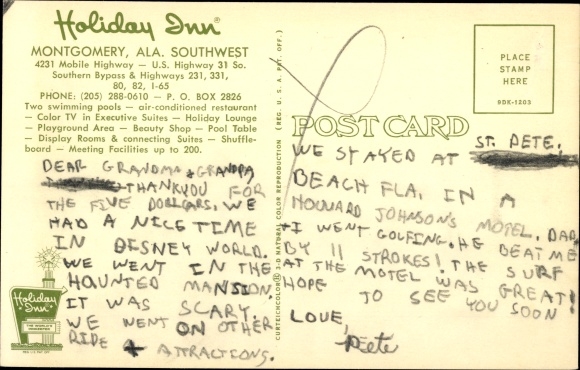 Holiday Inn®
MONTGOMERY, ALA. SOUTHWEST
4231 Mobile Highway — U.S. Highway 31 So.
Southern Bypass & Highways 231, 331,
80, 82, I-65
PHONE: (205) 288-0610 — P. O. BOX 2826
Two swimming pools — air-conditioned restaurant
— Color TV in Executive Suites — Holiday Lounge
— Playground Area — Beauty Shop — Pool Table
— Display Rooms & connecting Suites — Shuffle-
board — Meeting Facilities up to 200.
DEAR GRANDMA & GRANDPA,
THANKYOU FOR
THE FIVE DOLLARS. WE
HAD A NICE TIME
IN DISNEY WORLD.
WE WENT IN THE
HAUNTED MANSION.
IT WAS SCARY.
WE WENT ON OTHER
RIDE & ATTRACTIONS.
Holiday Inn
THE WORLD'S INNKEEPER
CURTEICHCOLOR® 3-D NATURAL COLOR REPRODUCTION (REG. U. S. A. PAT. OFF.)
POST CARD
PLACE
STAMP
HERE
9DK-1203
WE STAYED AT ST. PETE.
BEACH FLA. IN A
HOWARD JOHNSON'S MOTEL. DAD
& I WENT GOLFING. HE BEAT ME
BY 11 STROKES! THE SURF
AT THE MOTEL WAS GREAT!
HOPE TO SEE YOU SOON
LOVE,
Pete